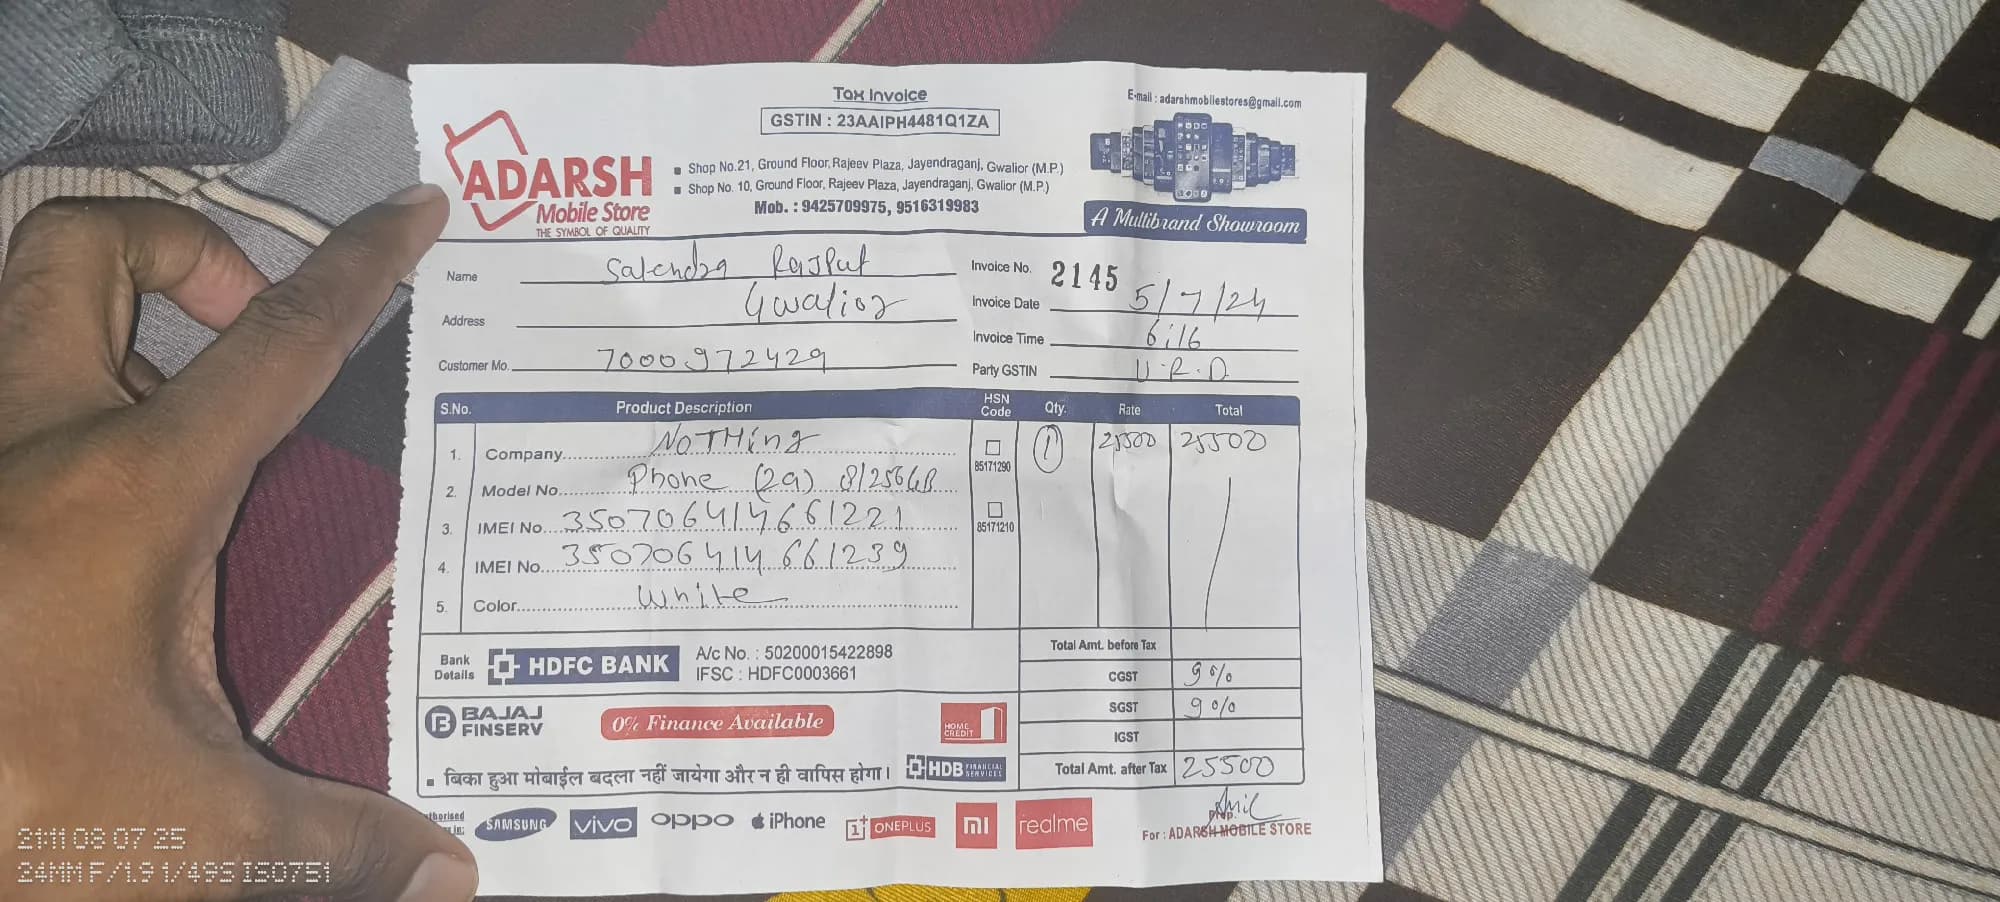 Tax Invoice
GSTIN : 23AAIPH4481Q1ZA
E-mail : adarshmobilestores@gmail.com
ADARSH
Mobile Store
THE SYMBOL OF QUALITY
Shop No.21, Ground Floor, Rajeev Plaza, Jayendraganj, Gwalior (M.P.)
Shop No. 10, Ground Floor, Rajeev Plaza, Jayendraganj, Gwalior (M.P.)
Mob. : 9425709975, 9516319983
A Multibrand Showroom
Name Satendra Rajput
Invoice No. 2145
Address Gwalior
Invoice Date 5/7/24
Invoice Time 6:16
Customer Mo. 7000972429
Party GSTIN U.R.D
S.No. Product Description HSN Code Qty. Rate Total
1. Company NOTHing 85171290 1 25500 25500
2. Model No Phone (2a) 8/256GB
3. IMEI No. 350706414661221 85171210
4. IMEI No. 350706414661239
5. Color White
Bank Details HDFC BANK A/c No. : 50200015422898
IFSC : HDFC0003661
Total Amt. before Tax
CGST 9%
SGST 9%
IGST
Total Amt. after Tax 25500
BAJAJ FINSERV 0% Finance Available HOME CREDIT
बिका हुआ मोबाईल बदला नहीं जायेगा और न ही वापिस होगा। HDB FINANCIAL SERVICES
SAMSUNG vivo oppo iPhone 1+ ONEPLUS mi realme
Anil
Prop.
For : ADARSH MOBILE STORE
21:11 08 07 25
24MM F/1.9 1/49S ISO751